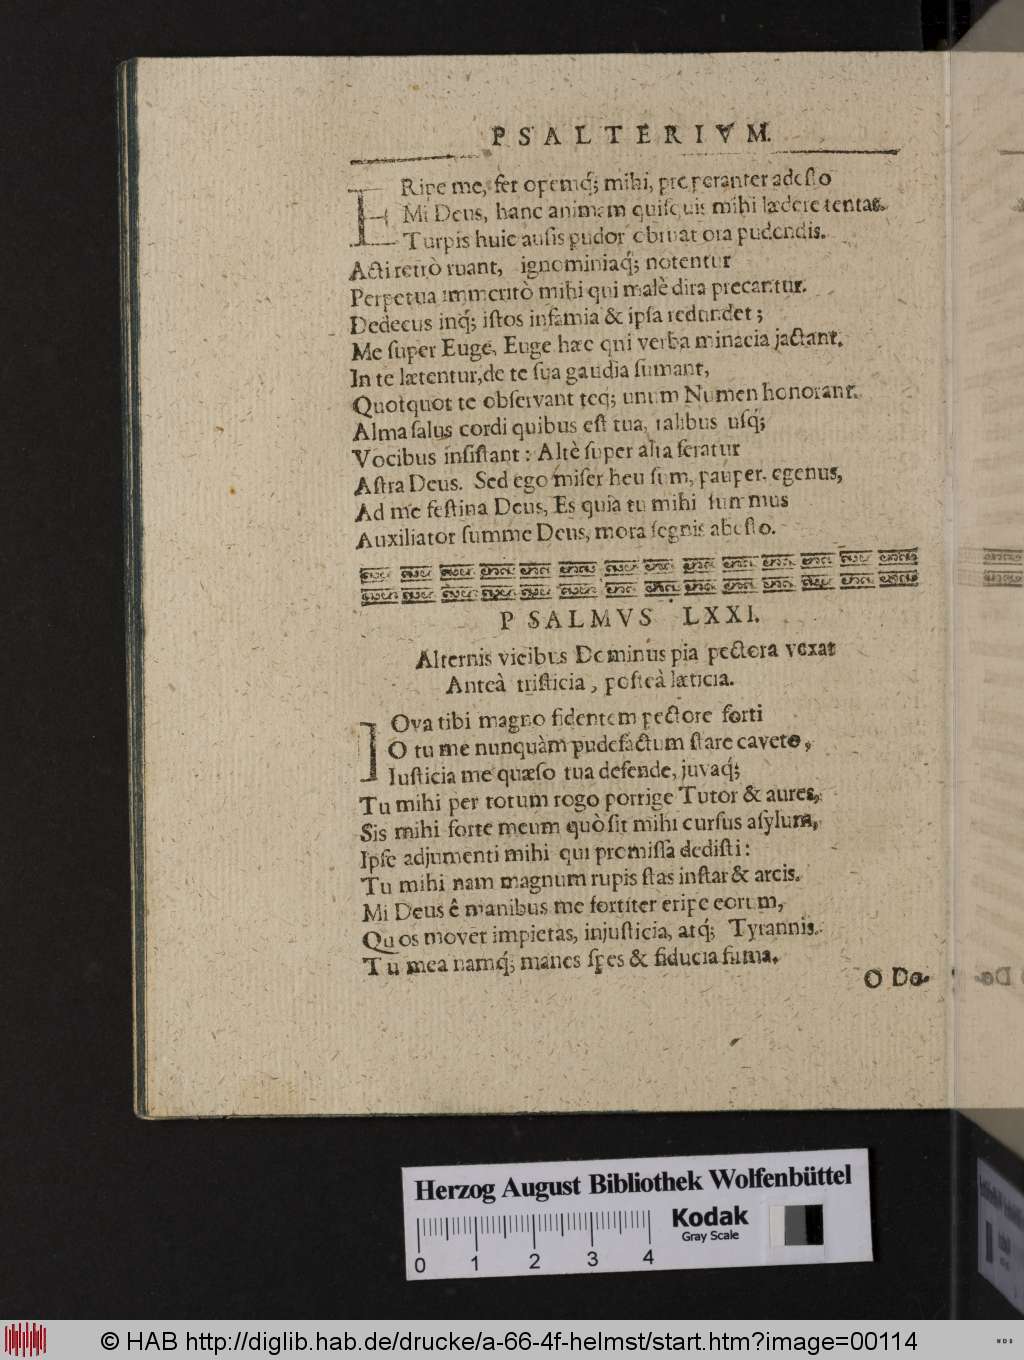 PSALTERIVM.
ERipe me, fer opemq́; mihi, properanter adeſto
Mi Deus, hanc animam quiſquis mihi lædere tentat.
Turpis huic auſis pudor obruat ora pudendis.
Acti retrò ruant, ignominiaq́; notentur
Perpetua immeritò mihi qui malè dira precantur.
Dedecus inq́; iſtos infamia & ipſa redundet;
Me ſuper Euge, Euge hæc qui verba minacia jactant.
In te lætentur, de te ſua gaudia ſumant,
Quotquot te obſervant teq; unum Numen honorant.
Alma ſalus cordi quibus eſt tua, talibus uſq́;
Vocibus inſiſtant: Altè ſuper alta feratur
Aſtra Deus. Sed ego miſer heu ſum, pauper, egenus,
Ad me feſtina Deus, Es quia tu mihi ſummus
Auxiliator ſumme Deus, mora ſegnis abeſto.
PSALMVS LXXI.
Alternis vicibus Dominus pia pectora vexat
Anteà triſticia, poſteà læticia.
IOva tibi magno fidentem pectore forti
O tu me nunquàm pudefactum ſtare caveto,
Iuſticia me quæſo tua defende, juvaq́;
Tu mihi per totum rogo porrige Tutor & aures,
Sis mihi forte meum quò ſit mihi curſus aſylum,
Ipſe adjumenti mihi qui promiſſa dediſti:
Tu mihi nam magnum rupis ſtas inſtar & arcis.
Mi Deus ê manibus me fortiter eripe eorum,
Quos movet impietas, injuſticia, atq́; Tyrannis.
Tu mea namq́; manes ſpes & fiducia firma.
O Do-
Herzog August Bibliothek Wolfenbüttel
Kodak
Gray Scale
0 1 2 3 4
© HAB http://diglib.hab.de/drucke/a-66-4f-helmst/start.htm?image=00114